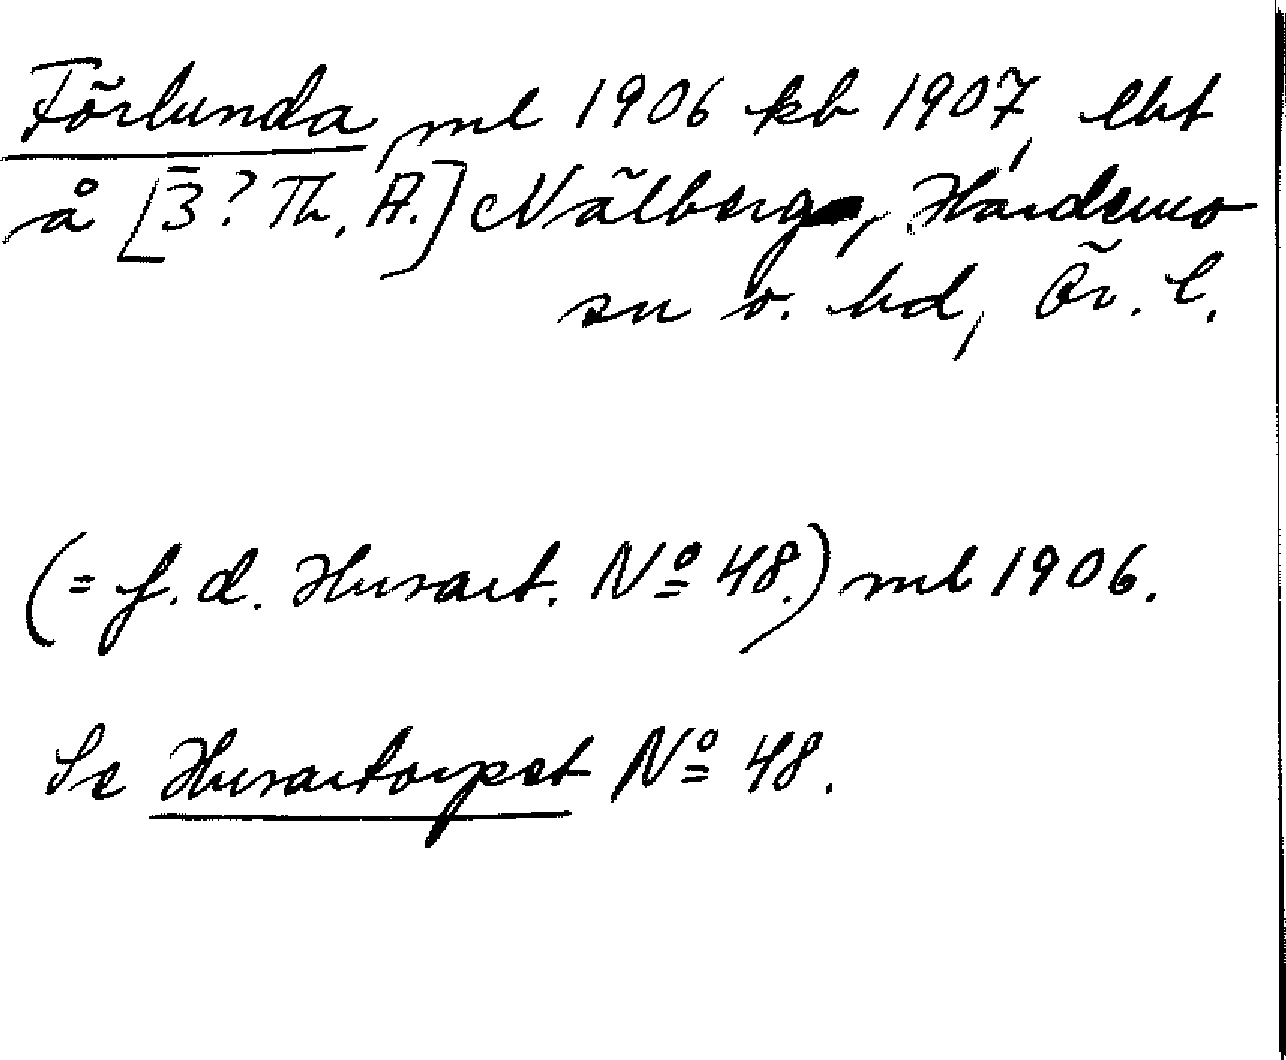 Förlunda, ml 1906 kb 1907, lht
å [3̄? Th. A.] Nälberg, Hardemo
sn o. hd, Ör. l.
(= f.d. Husart. Nº 48.) ml 1906.
Se Husartorpet Nº 48.